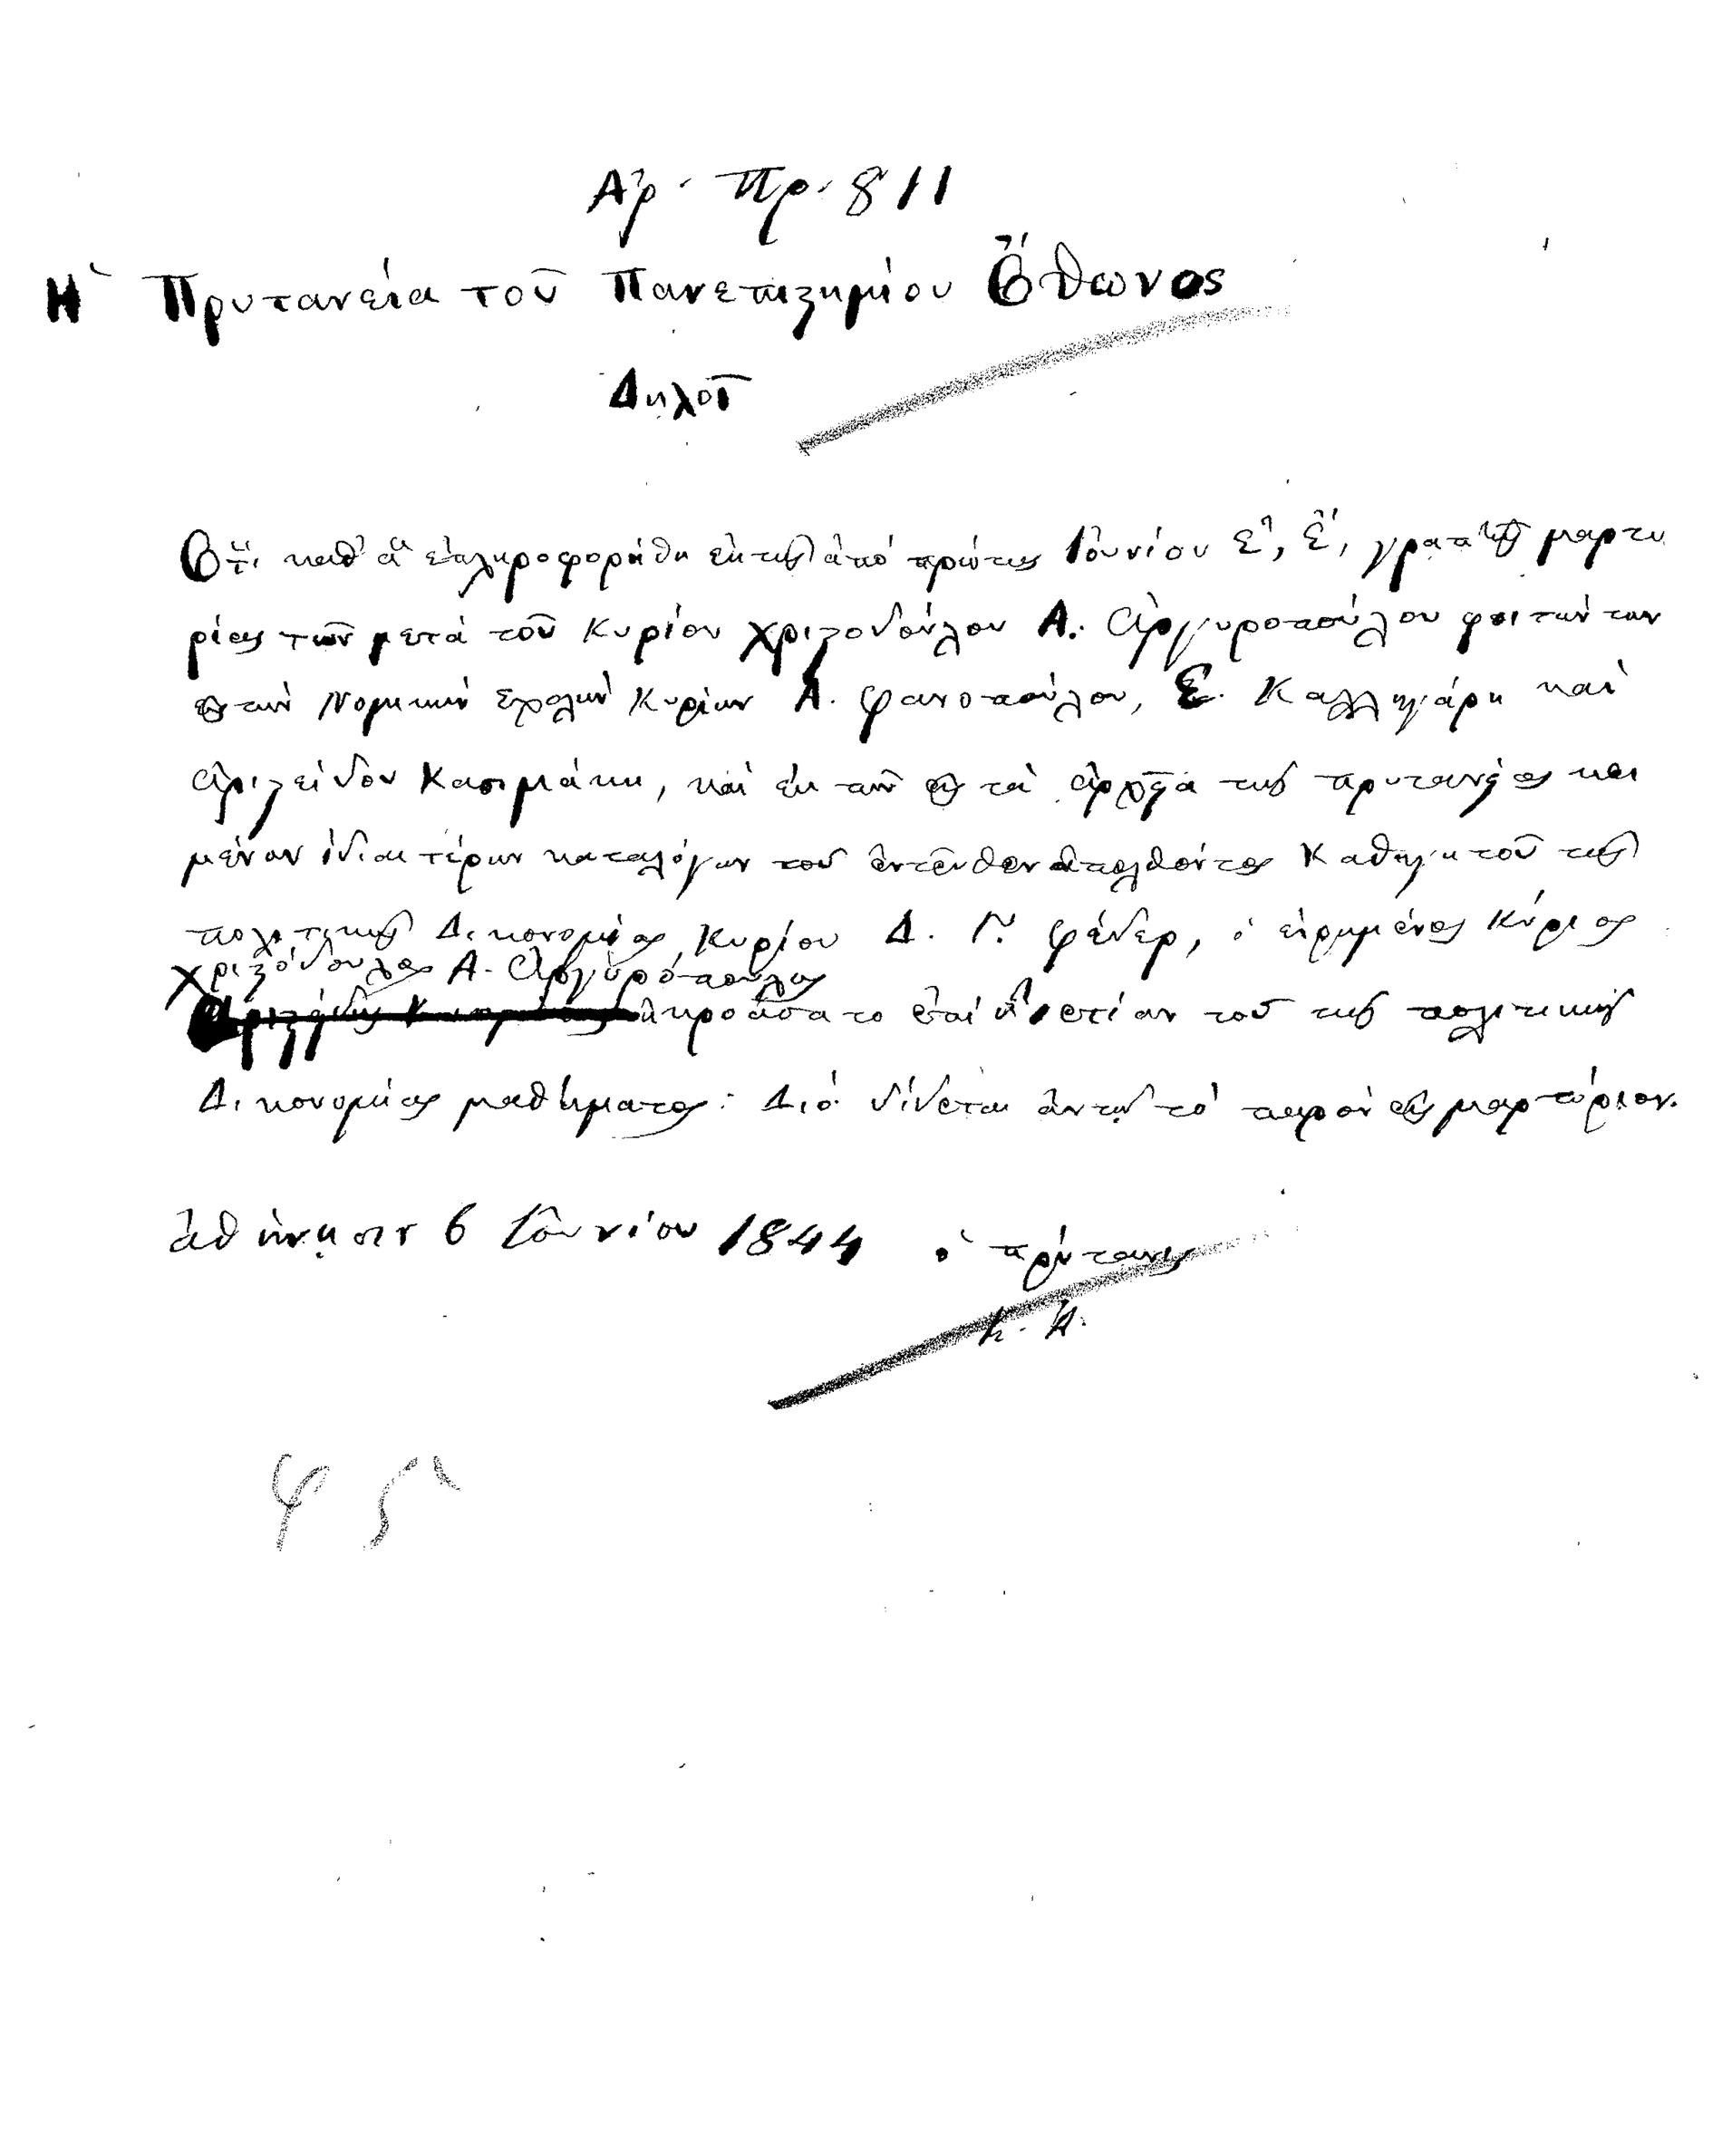 Ἀρ. Πρ. 811
Ἡ Πρυτανεία τοῦ Πανεπιστημίου Ὄθωνος
Δηλοῖ
Ὅτι καθ' ἃ ἐπληροφορήθη ἐκ τῆς ἀπὸ πρώτης Ἰουνίου ἐ, ἔ, γραπτῆς μαρτυ
ρίας τῶν μετὰ τοῦ Κυρίου Χριστοδούλου Α. Ἀργυροπούλου φοιτησάντων
εἰς τὴν Νομικὴν Σχολὴν Κυρίων Α. Φανοπούλου, Ε. Καλλιγάρη καὶ
Ἀριστείδου Κασιμάκη, καὶ ἐκ τῶν εἰς τὰ ἀρχεῖα τῆς πρυτανείας κει
μένων ἰδιαιτέρων καταλόγων τοῦ ἐντεῦθεν ἀπελθόντος Καθηγητοῦ τῆς
πολιτικῆς Δικονομίας Κυρίου Δ. Γ. Φέδερ, ὁ εἰρημένος Κύριος
Χριστόδουλος Α. Ἀργυρόπουλος
ἠκροάσατο ἐπὶ ἐτίαν τοῦ τῆς πολιτικῆς
Δικονομίας μαθήματος: Διὸ δίδεται αὐτῷ τὸ παρὸν εἰς μαρτύριον.
Ἀθήνησιν 6 Ἰουνίου 1844 ὁ πρύτανις
Κ. Α.